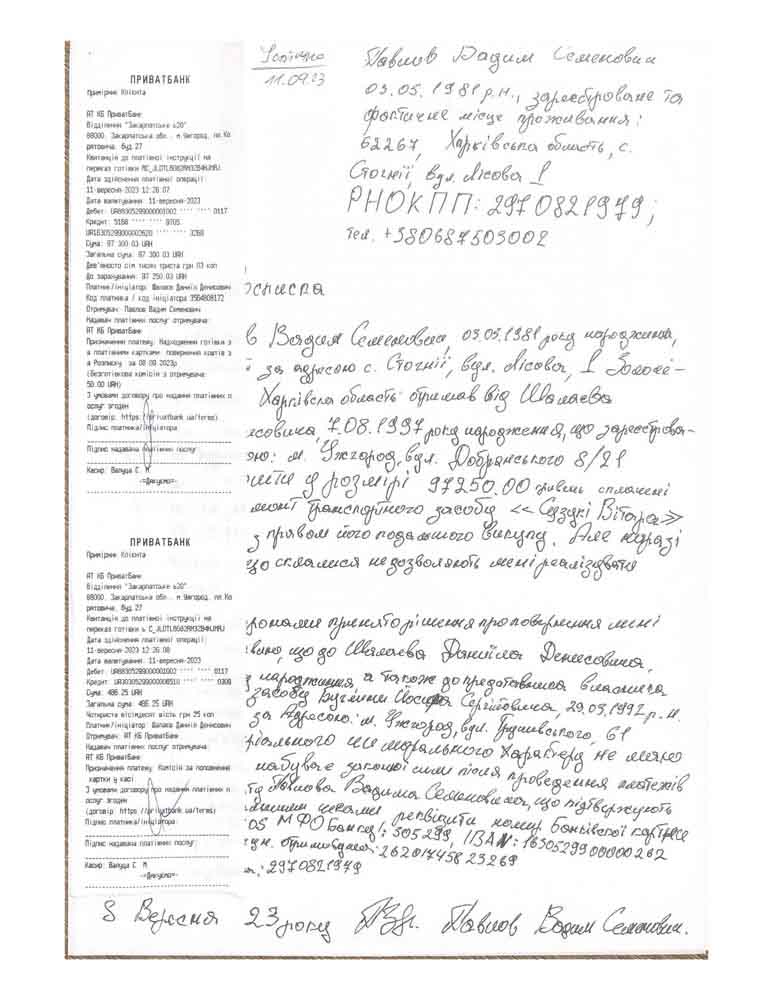 ПРИВАТБАНК
Примірник Клієнта
АТ КБ ПриватБанк
Відділення "Закарпатське ь20"
88000. Закарпатська обл., м.Ужгород, пл.Ко
рятовича, буд 27
Квитанція до платіжної інструкції на
Дата здійснення платіжної операції:
11-вересня-2023 12:26:07
Дата валютування: 11-вересня-2023
Сума: 97 300 03 UAH
Загальна сума: 97 300 03 UAH
Дев'яносто сім тисяч триста грн 03 коп
До зарахування: 97 250.03 UAH
Платник/ініціатор: Шалаєв Данііл Денисович
Код платника / код ініціатора 3564808172
Отримувач: Павлов Вадим Семенович
Надавач платіжних послуг отримувача:
АТ КБ ПриватБанк
Призначення платежу: Надходження готівки з
а платіжними картками. повернення коштів з
а Розписку за 08.09.2023р
(безготівкова комісія з отримувача:
50.00 UAH)
З умовами договору про надання платіжних п
ослуг згоден
(договір: https://privatbank.ua/terms)
Підпис платника/ініціатора:
Підпис надавача платіжних послуг
Касир: Валуца Є. М.
-=Дякуємо=-
ПРИВАТБАНК
Примірник Клієнта
АТ КБ ПриватБанк
Відділення "Закарпатське ь20"
88000. Закарпатська обл., м.Ужгород, пл.Ко
рятовича, буд 27
Квитанція до платіжної інструкції на
Дата здійснення платіжної операції:
11-вересня-2023 12:26:08
Дата валютування: 11-вересня-2023
Сума: 486.25 UAH
Загальна сума: 486.25 UAH
Чотириста вісімдесят шість грн 25 коп
Платник/ініціатор: Шалаєв Данііл Денисович
Отримувач: АТ КБ ПриватБанк
Надавач платіжних послуг отримувача:
АТ КБ ПриватБанк
Призначення платежу: Комісія за поповнення
картки у касі
З умовами договору про надання платіжних п
ослуг згоден
(договір: https://privatbank.ua/terms)
Підпис платника/ініціатора:
Підпис надавача платіжних послуг:
Касир: Валуца Є. М.
-=Дякуємо=-
11.09.23
Павлов Вадим Семенович
03.05.1981 р.н., зареєстроване та
фактичне місце проживання:
62267, Харківська область, с.
вул. Лісова 1
РНОКПП: 2970821979;
тел. +380687503002
озписка
в Вадим Семенович, 03.05.1981 року народження,
за адресою с. вул. Лісова, 1
Харківська область отримав від Шалаєва
исовича, 7.08.1997 року народження, що зареєстрова-
ю: м. Ужгород, вул. Добрянського 8/21
у розмірі 97250.00 гривень сплачені
ремонт транспортного засобу «Сузукі Вітара»
з правом його подальшого викупу. Але наразі
що склалися не дозволяють мені реалізувати
прийнято рішення про повернення мені
що до Шалаєва Данііла Денисовича,
народження а також до представника власника
засобу Йосифа Сергійовича, 29.03.1992 р.н.
за Адресою: м. Ужгород, вул. Грушевського, 61
ріального чи морального характеру не маю
набуває законної сили після проведення платежів
Павлова Вадима Семеновича, що підтверджують
реквізити номер банківської картки
МФО Банку: 305299, IBAN:
2970821979
8 Вересня 23 року Павлов Вадим Семенович.